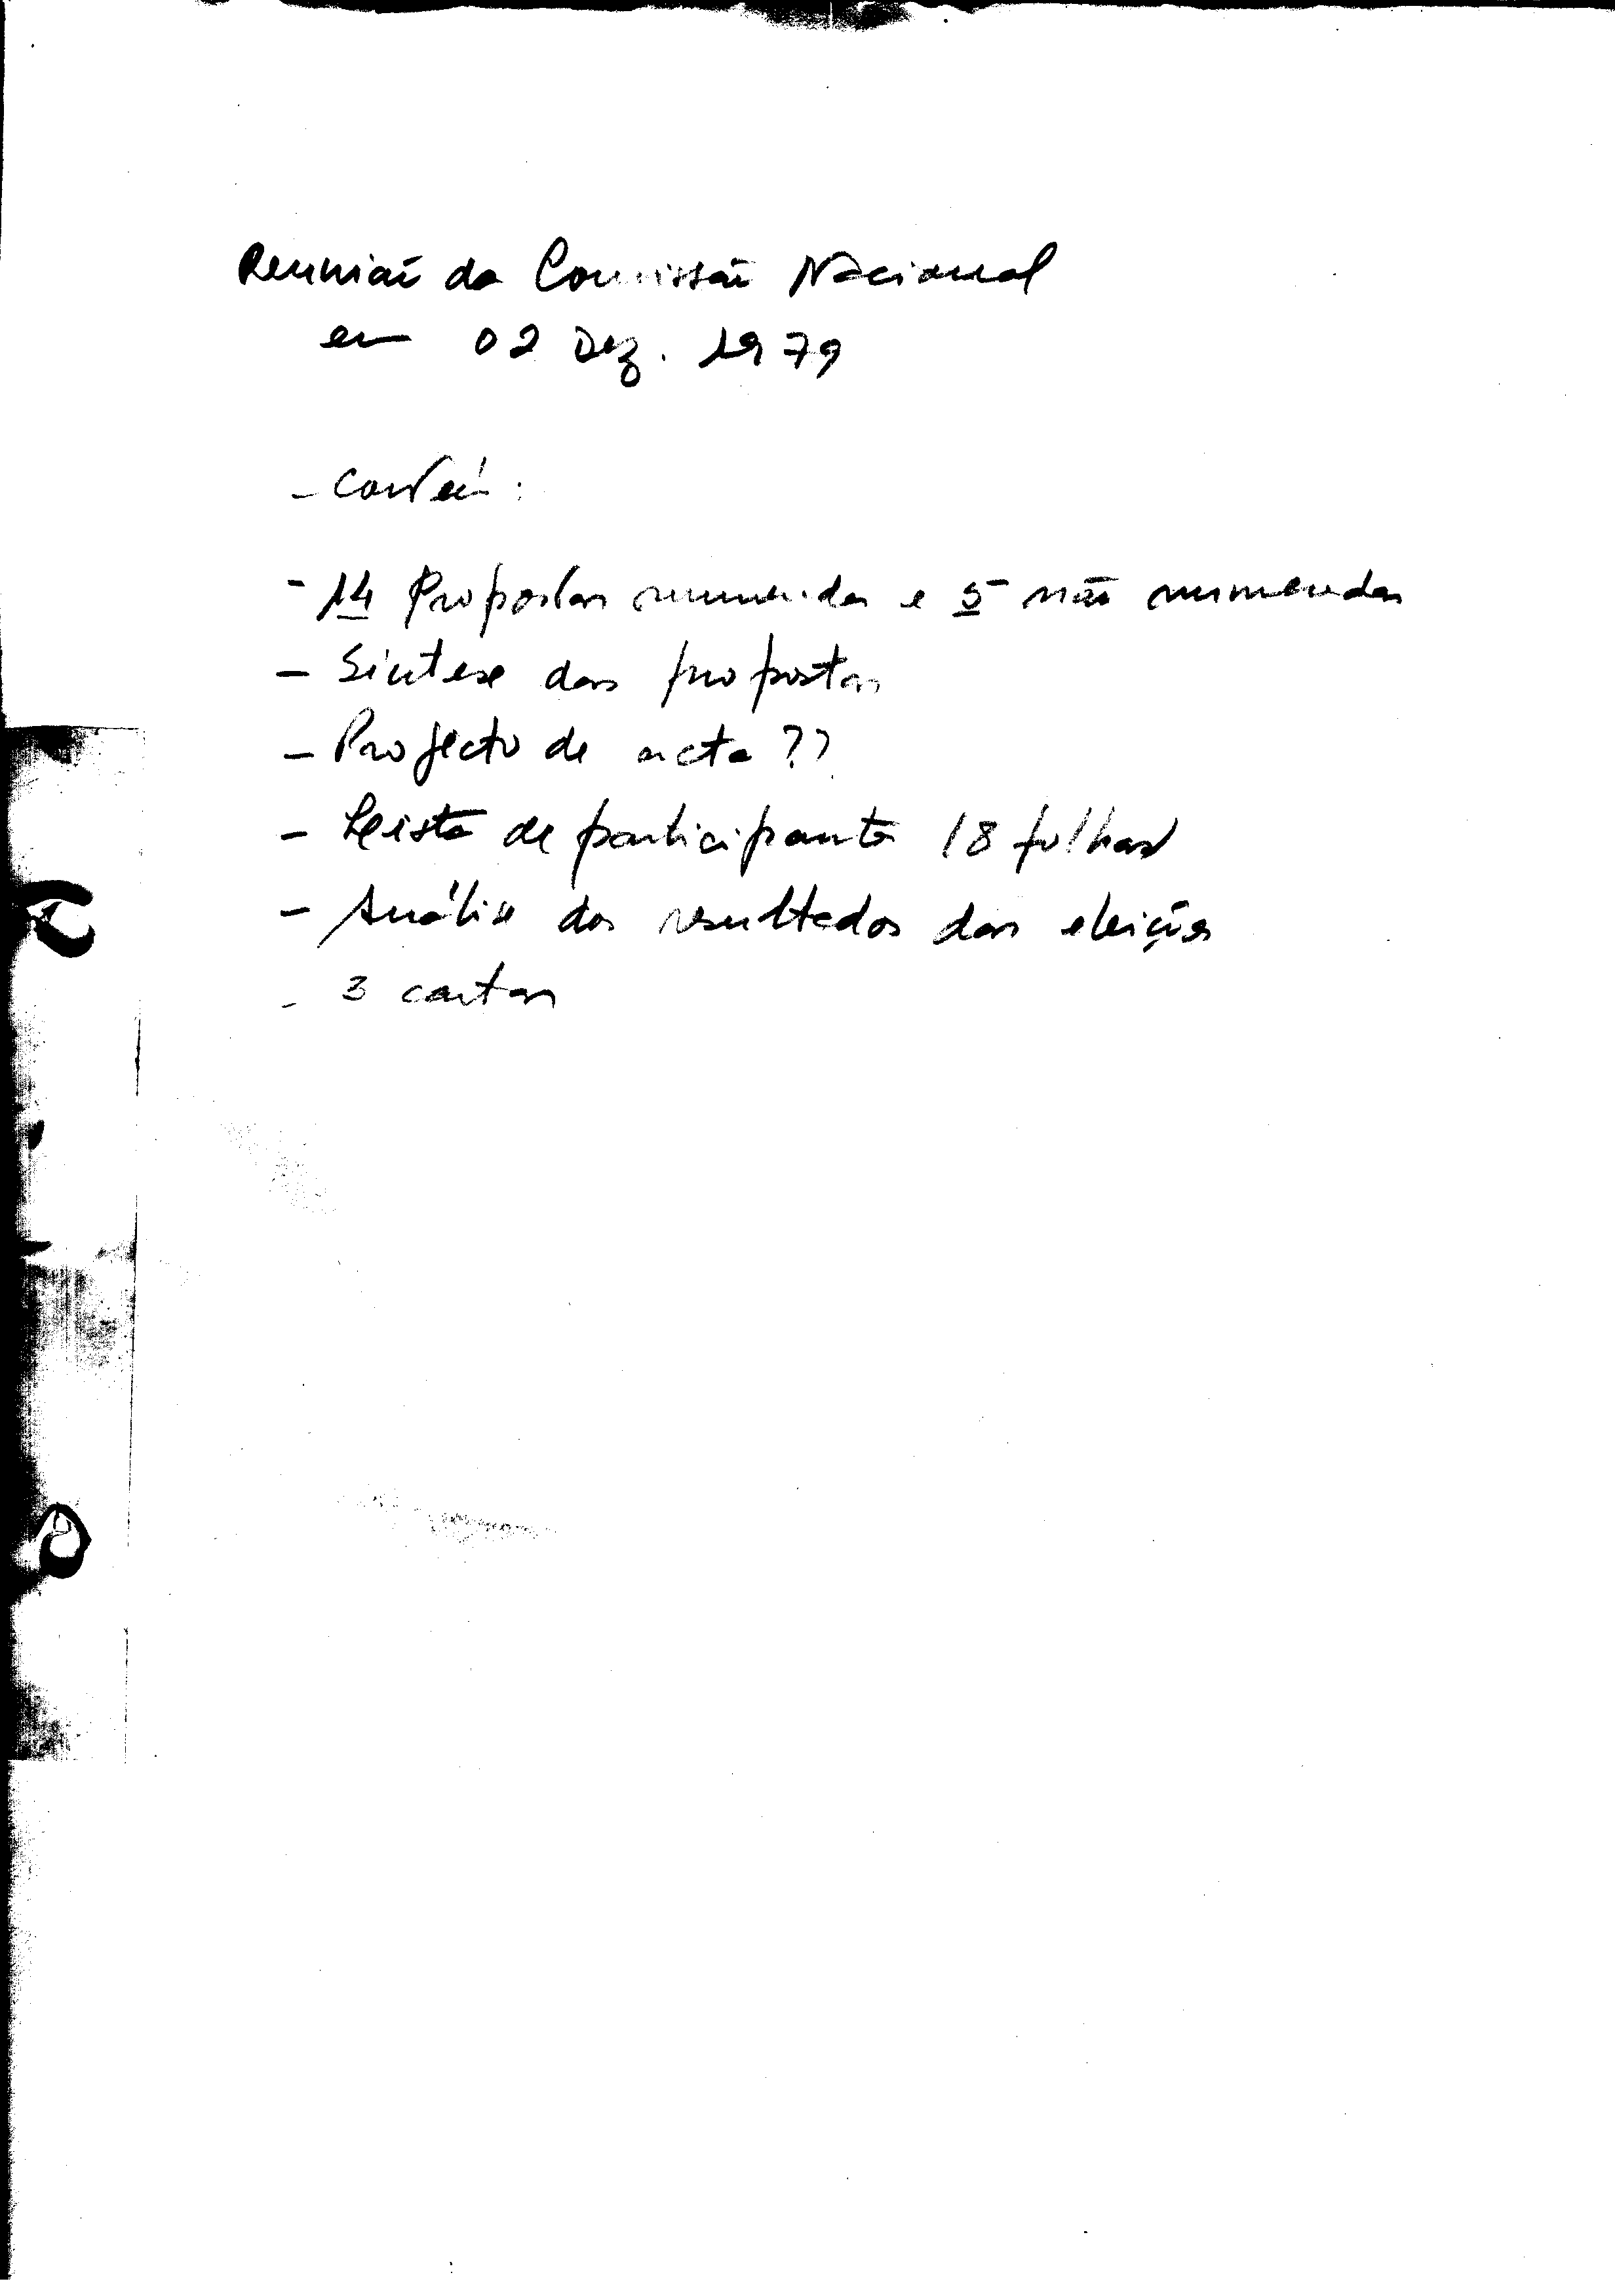 Reunião da Comissão Nacional
em 02 Dez. 1979
- Contém:
- 14 Propostas numeradas e 5 não numeradas
- Síntese das propostas
- Projecto de acta ??
- Lista de participantes 18 folhas
- Análise dos resultados das eleições
- 3 cartas